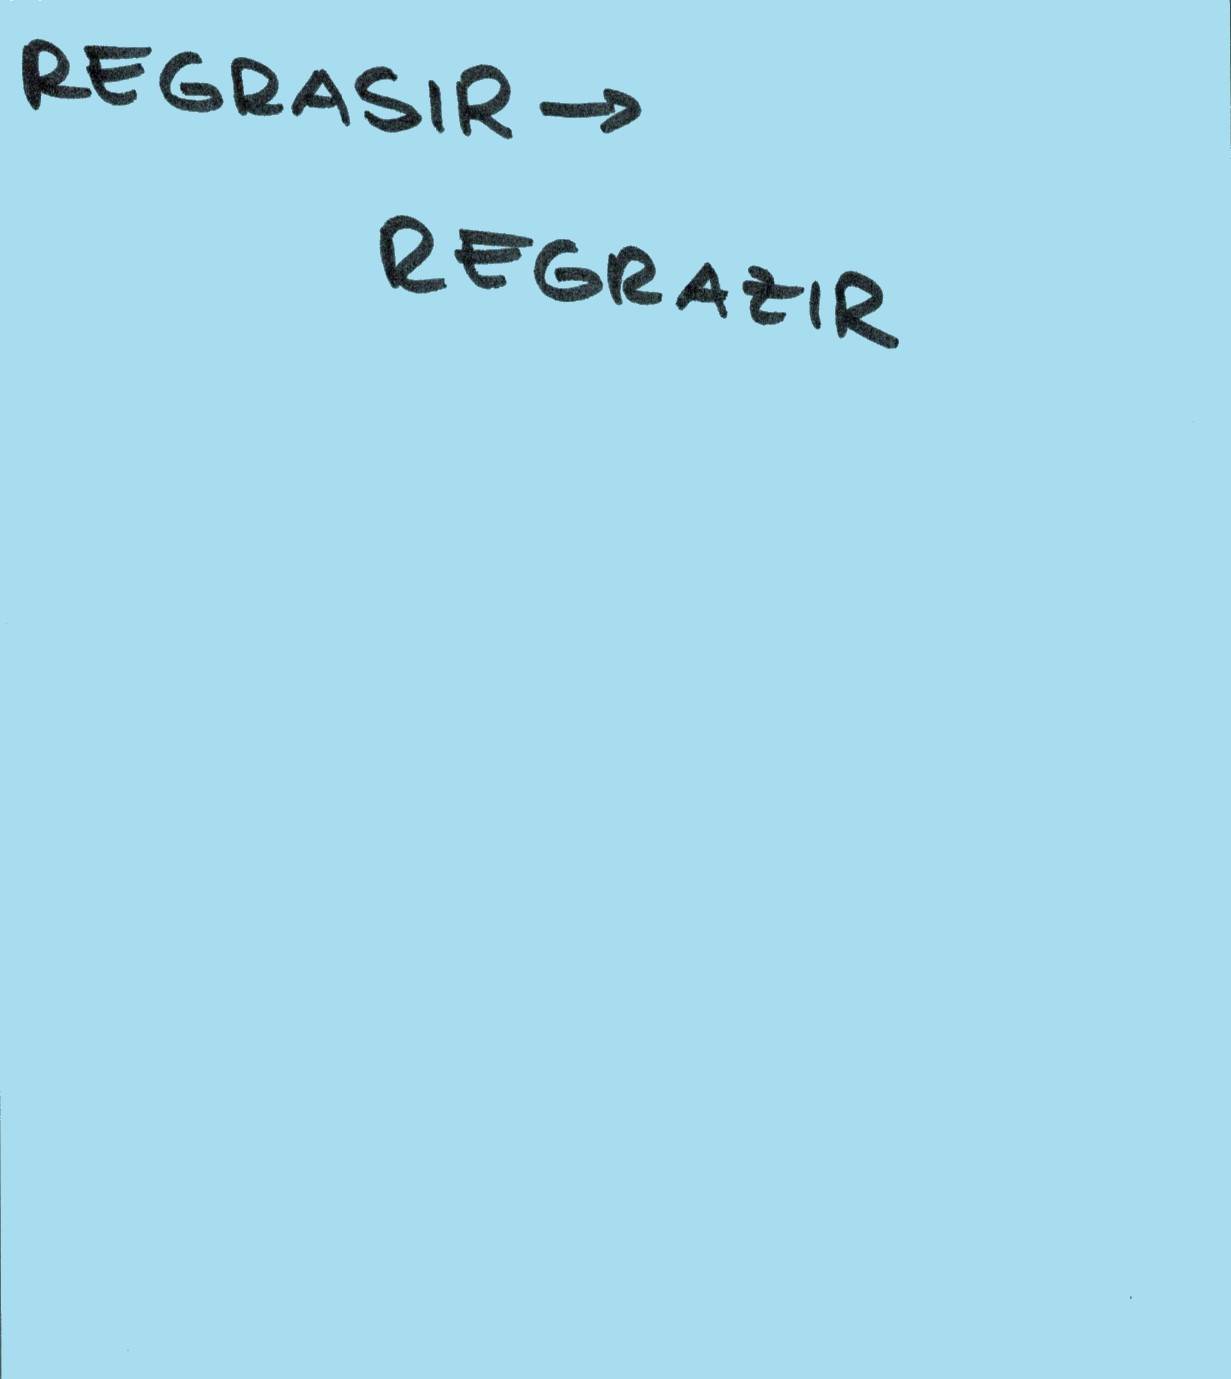 REGRASIR →
REGRAZIR